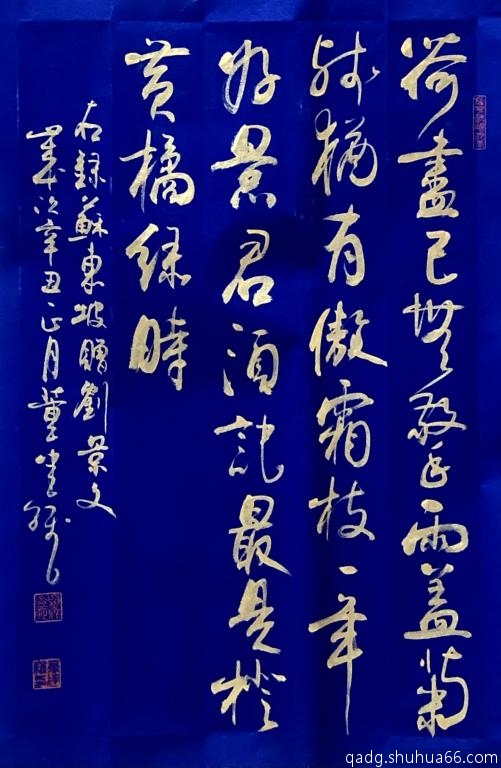 荷盡已無擎雨蓋菊
殘猶有傲霜枝一年
好景君須記最是橙
黃橘綠時
右録蘇東坡贈劉景文
歲次辛丑正月董
qadg.shuhua66.com